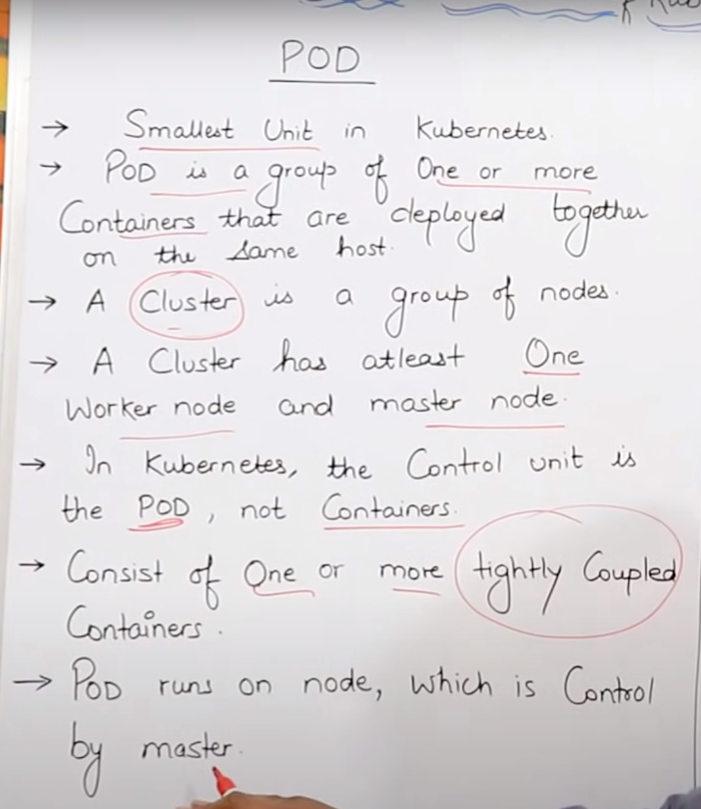 POD
→ Smallest Unit in Kubernetes.
→ POD is a group of One or more
Containers that are deployed together
on the same host.
→ A Cluster is a group of nodes.
→ A Cluster has atleast One
Worker node and master node.
→ In Kubernetes, the Control unit is
the POD, not Containers.
→ Consist of One or more tightly Coupled
Containers.
→ POD runs on node, which is Control
by master.